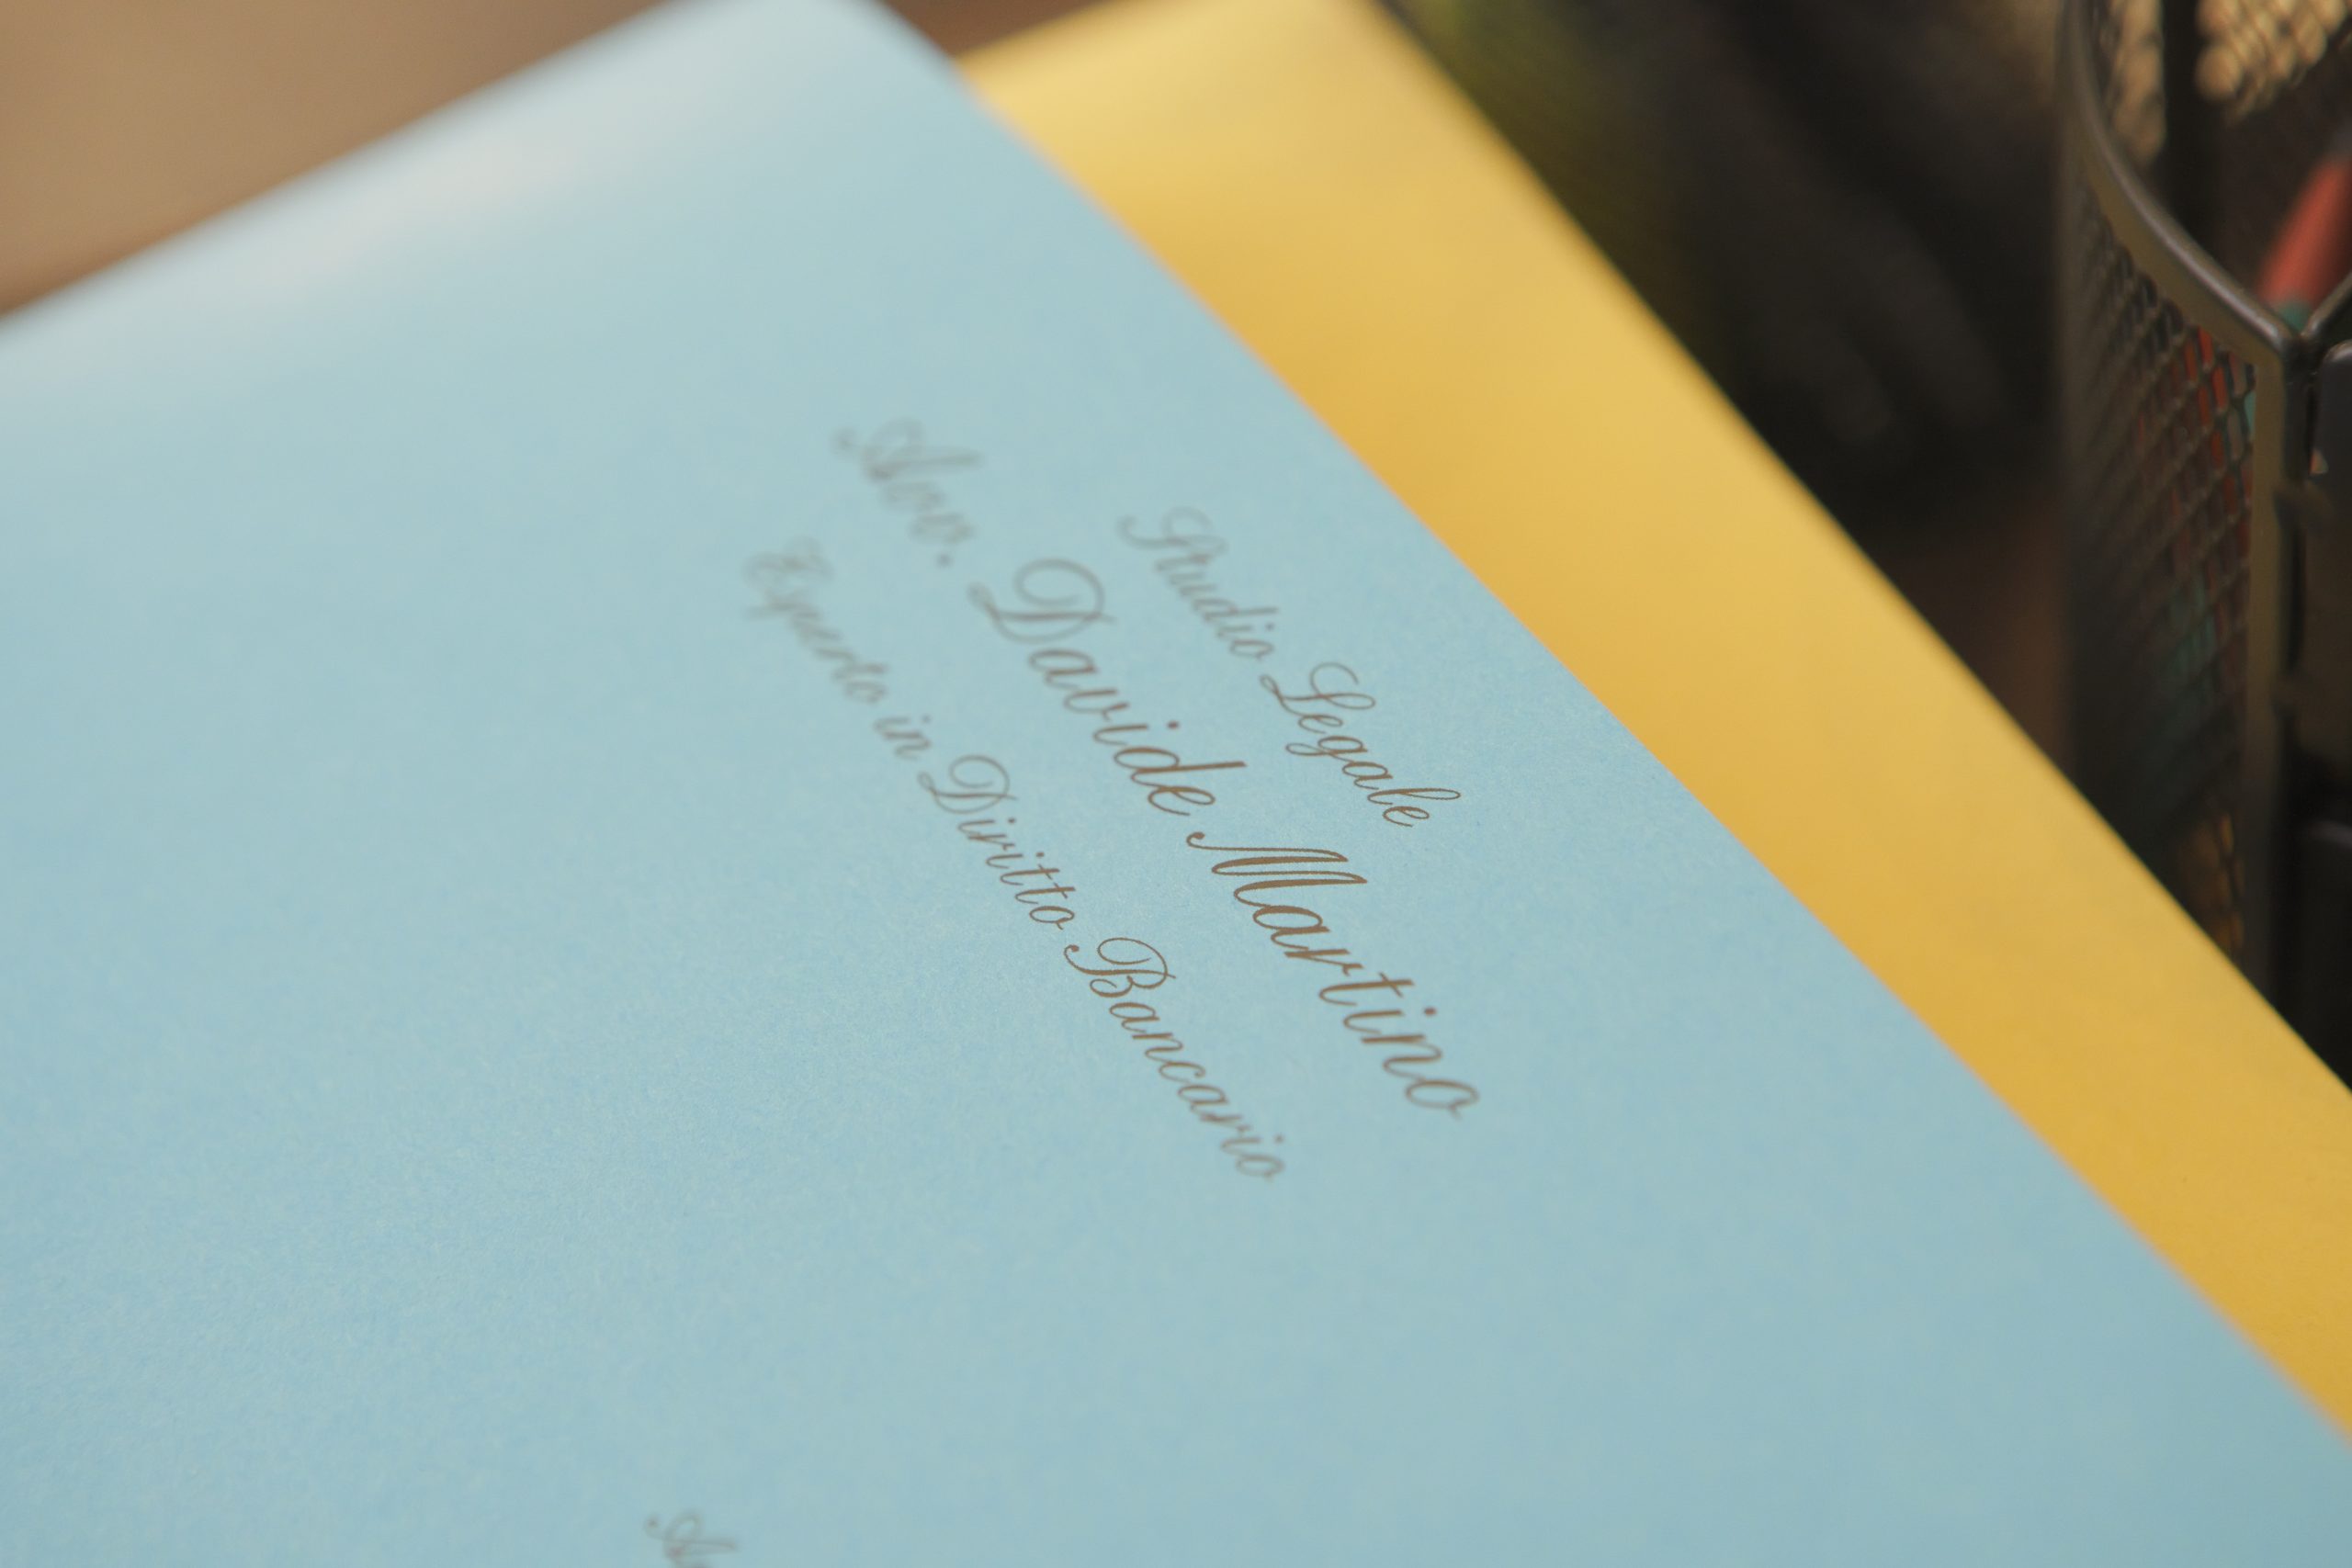 Studio Legale
Avv. Davide Martino
Esperto in Diritto Bancario